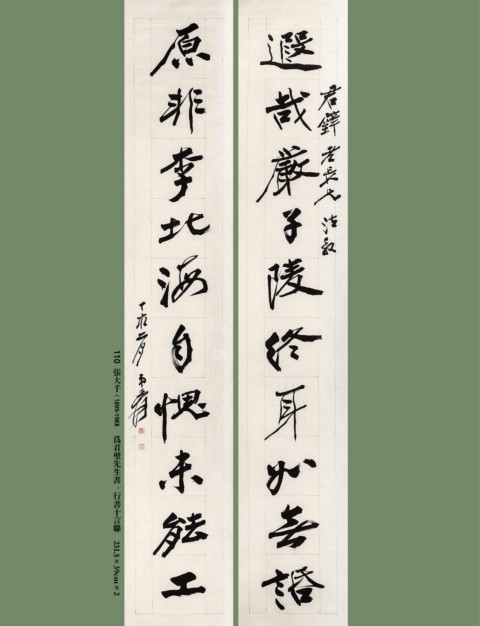 君鐸老長兄法教
遐哉嚴子陵終耳如無
原非李北海自愧未能工
二月弟爰
110 張大千 (1899-1983) 爲君璧先生書．行書十言聯 231.5×39cm×2